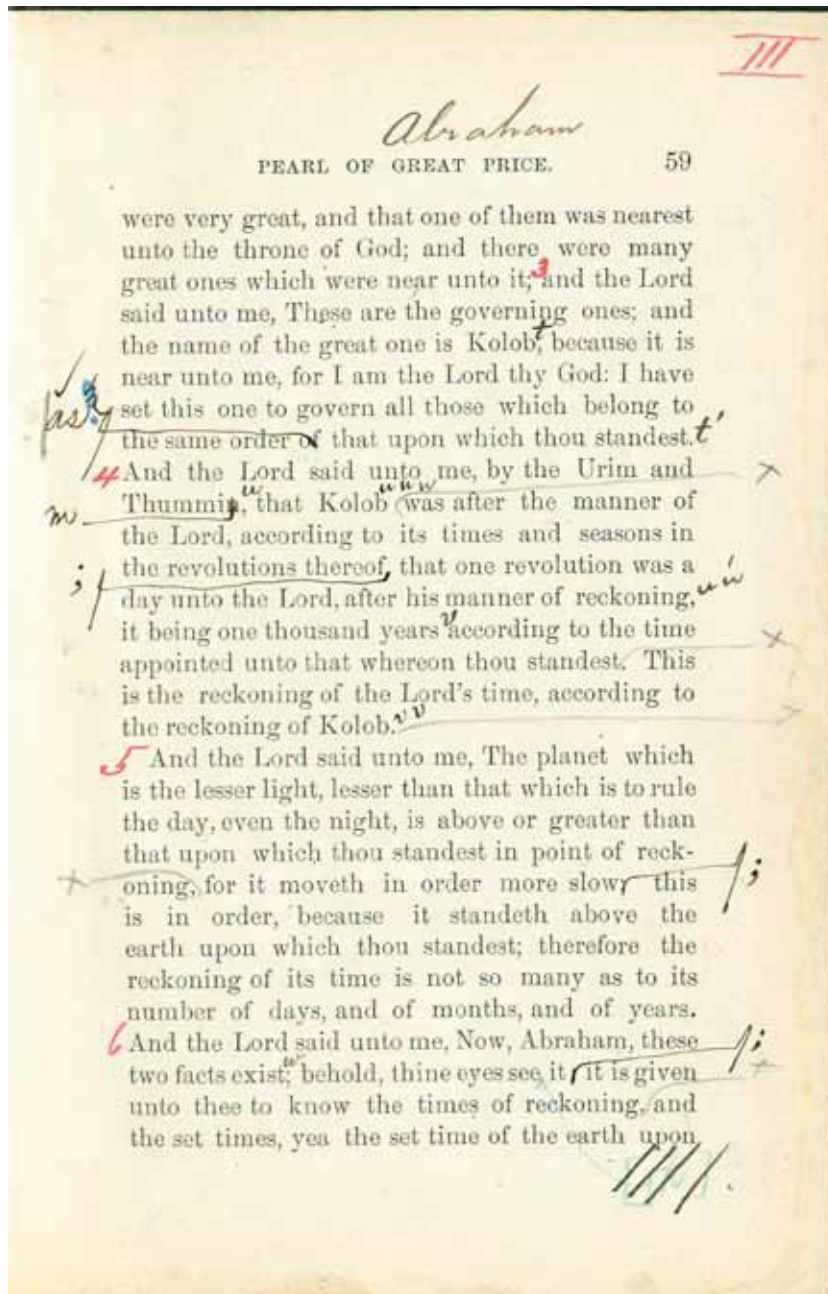 III
Abraham
PEARL OF GREAT PRICE. 59
were very great, and that one of them was nearest
unto the throne of God; and there were many
great ones which were near unto it; 3 and the Lord
said unto me, These are the governing ones; and
the name of the great one is Kolob,t because it is
near unto me, for I am the Lord thy God: I have
as set this one to govern all those which belong to
the same order of that upon which thou standest.t'
4 And the Lord said unto me, by the Urim and
m Thummin,u that Kolob uuu was after the manner of
the Lord, according to its times and seasons in
; the revolutions thereof, that one revolution was a
day unto the Lord, after his manner of reckoning,
it being one thousand years v according to the time
appointed unto that whereon thou standest. This
is the reckoning of the Lord's time, according to
the reckoning of Kolob.vv
5 And the Lord said unto me, The planet which
is the lesser light, lesser than that which is to rule
the day, even the night, is above or greater than
that upon which thou standest in point of reck-
oning, for it moveth in order more slow this ;
is in order, because it standeth above the
earth upon which thou standest; therefore the
reckoning of its time is not so many as to its
number of days, and of months, and of years.
6 And the Lord said unto me, Now, Abraham, these ;
two facts exist;w behold, thine eyes see it it is given
unto thee to know the times of reckoning, and
the set times, yea the set time of the earth upon